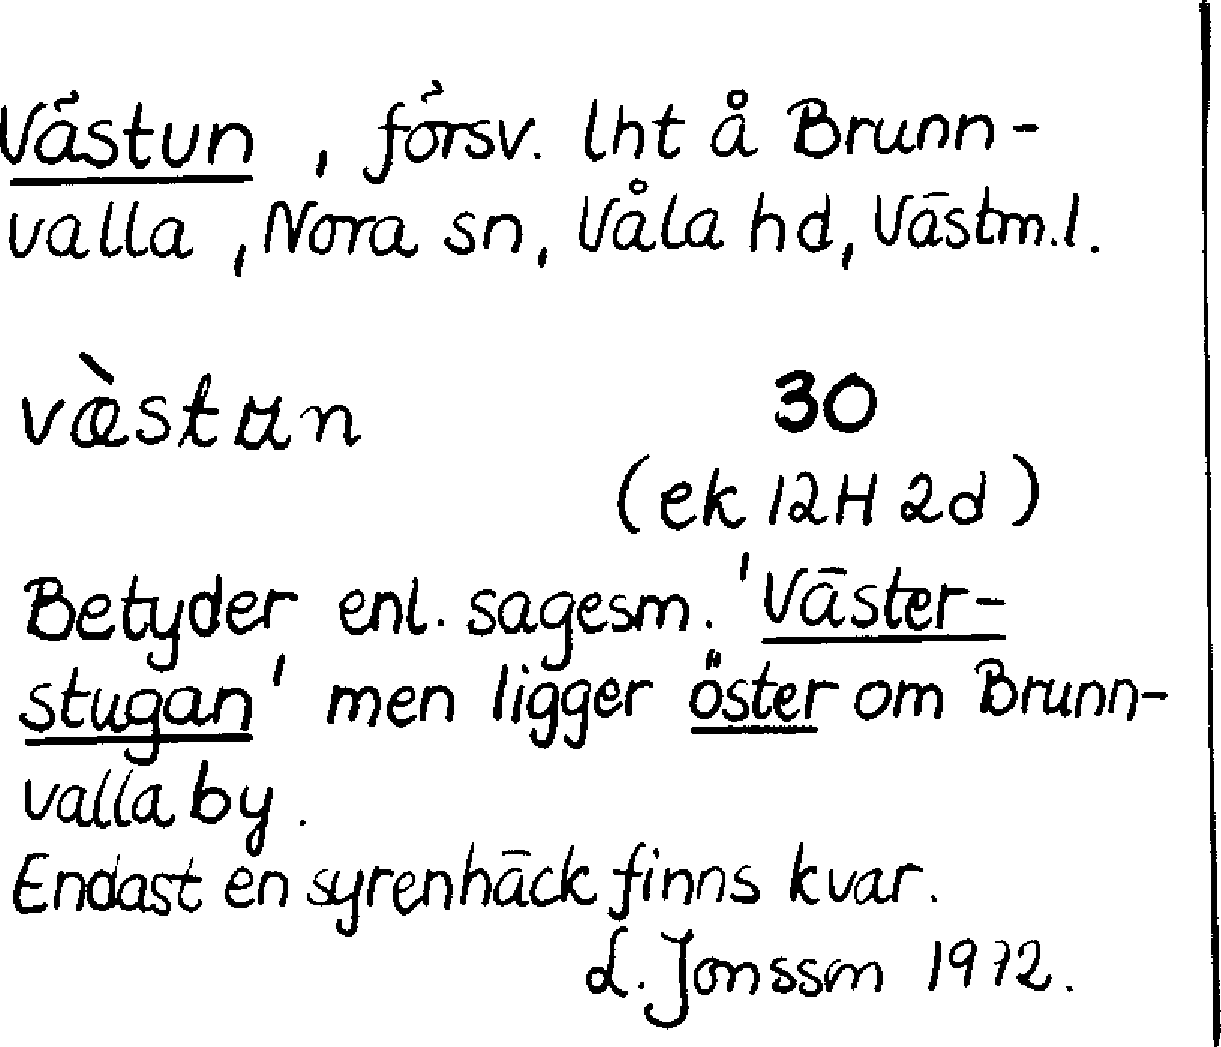 Västun, försv. lht å Brunn-
valla, Nora sn, Våla hd, Västm.l.
væ̀stun 30
(ek 12H 2d)
Betyder enl. sagesm. 'Väster-
stugan' men ligger öster om Brunn-
valla by.
Endast en syrenhäck finns kvar.
L. Jonsson 1972.